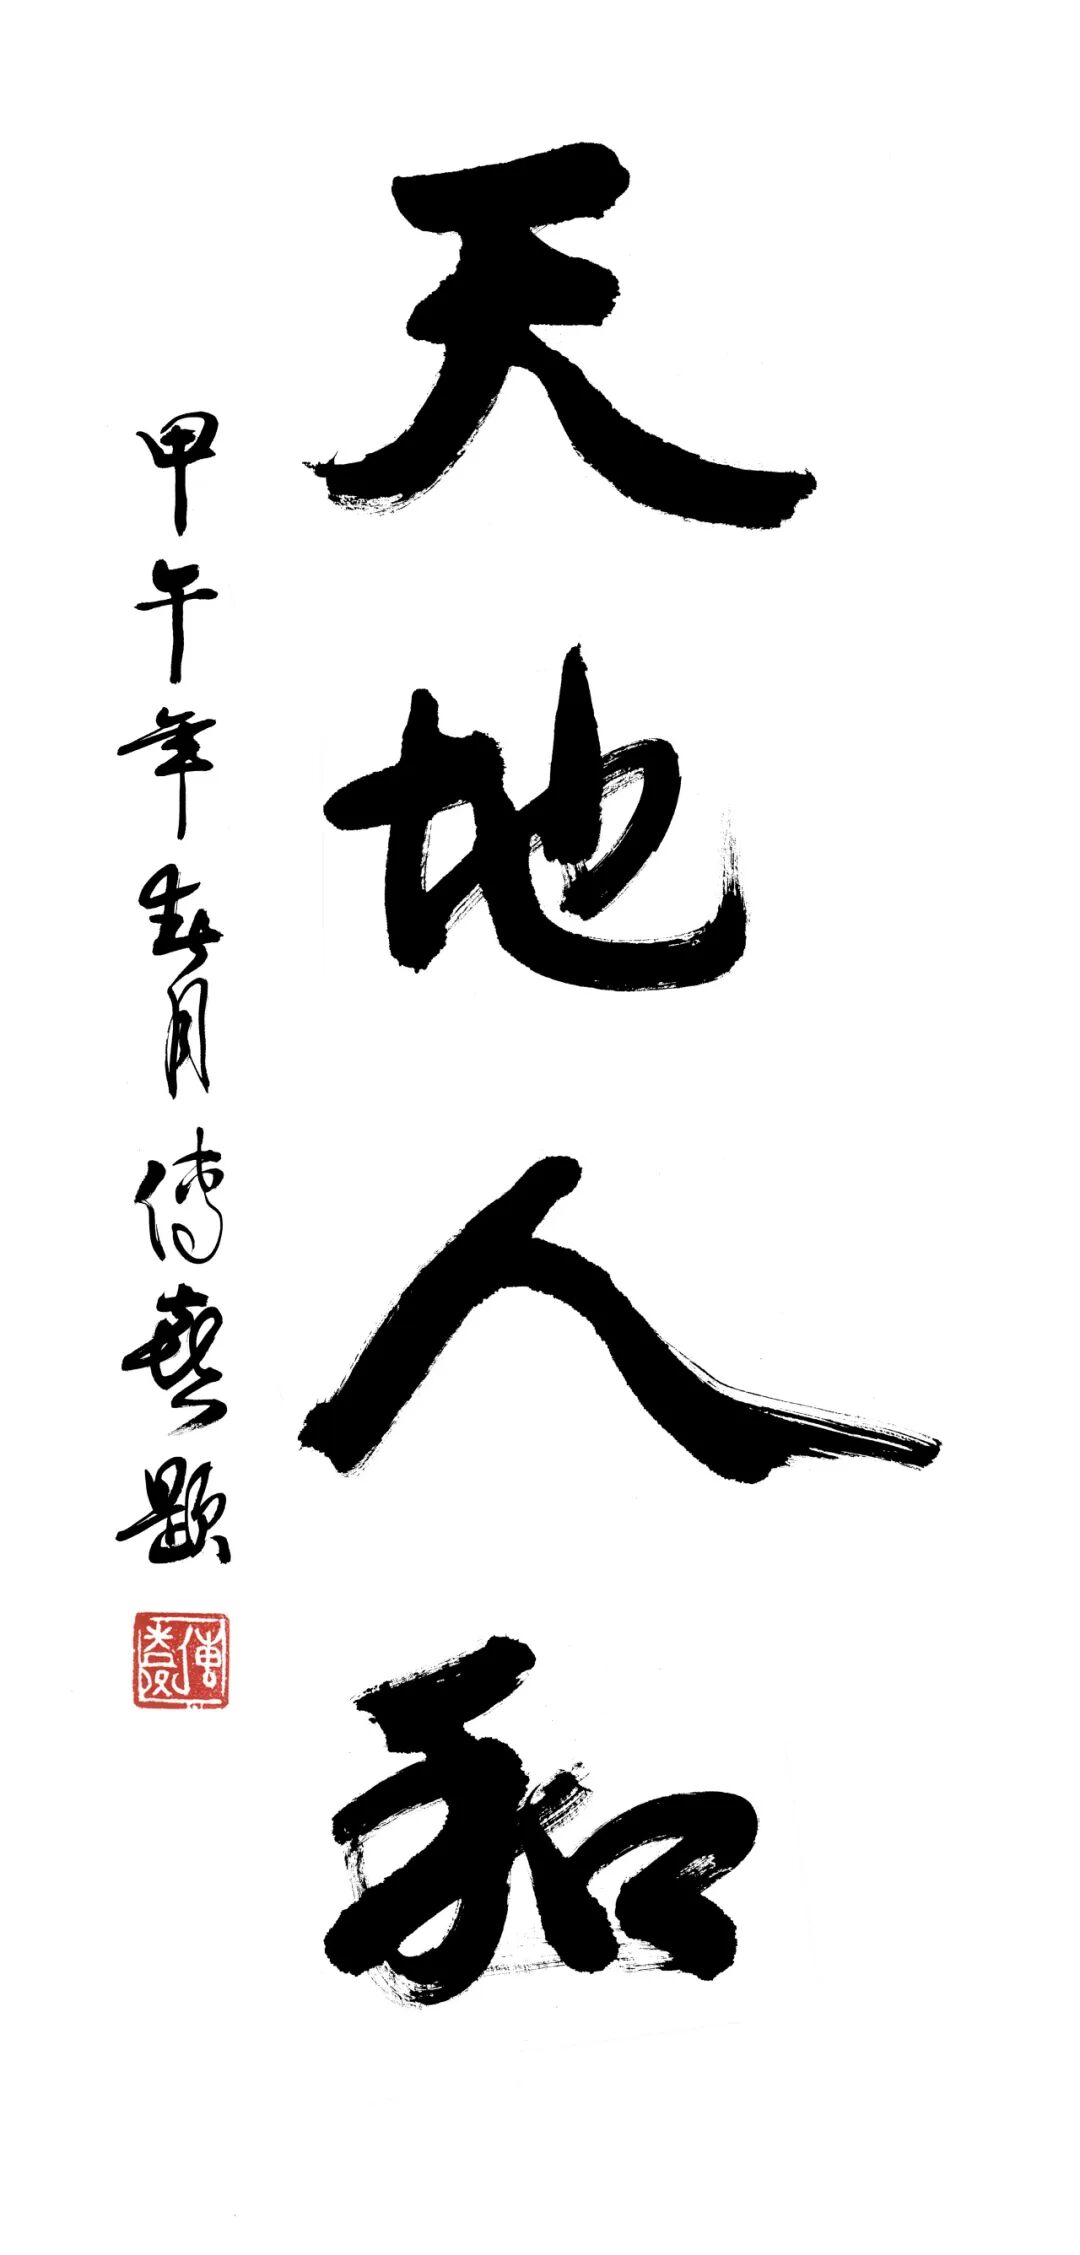 天地人和
甲午年春月傳題